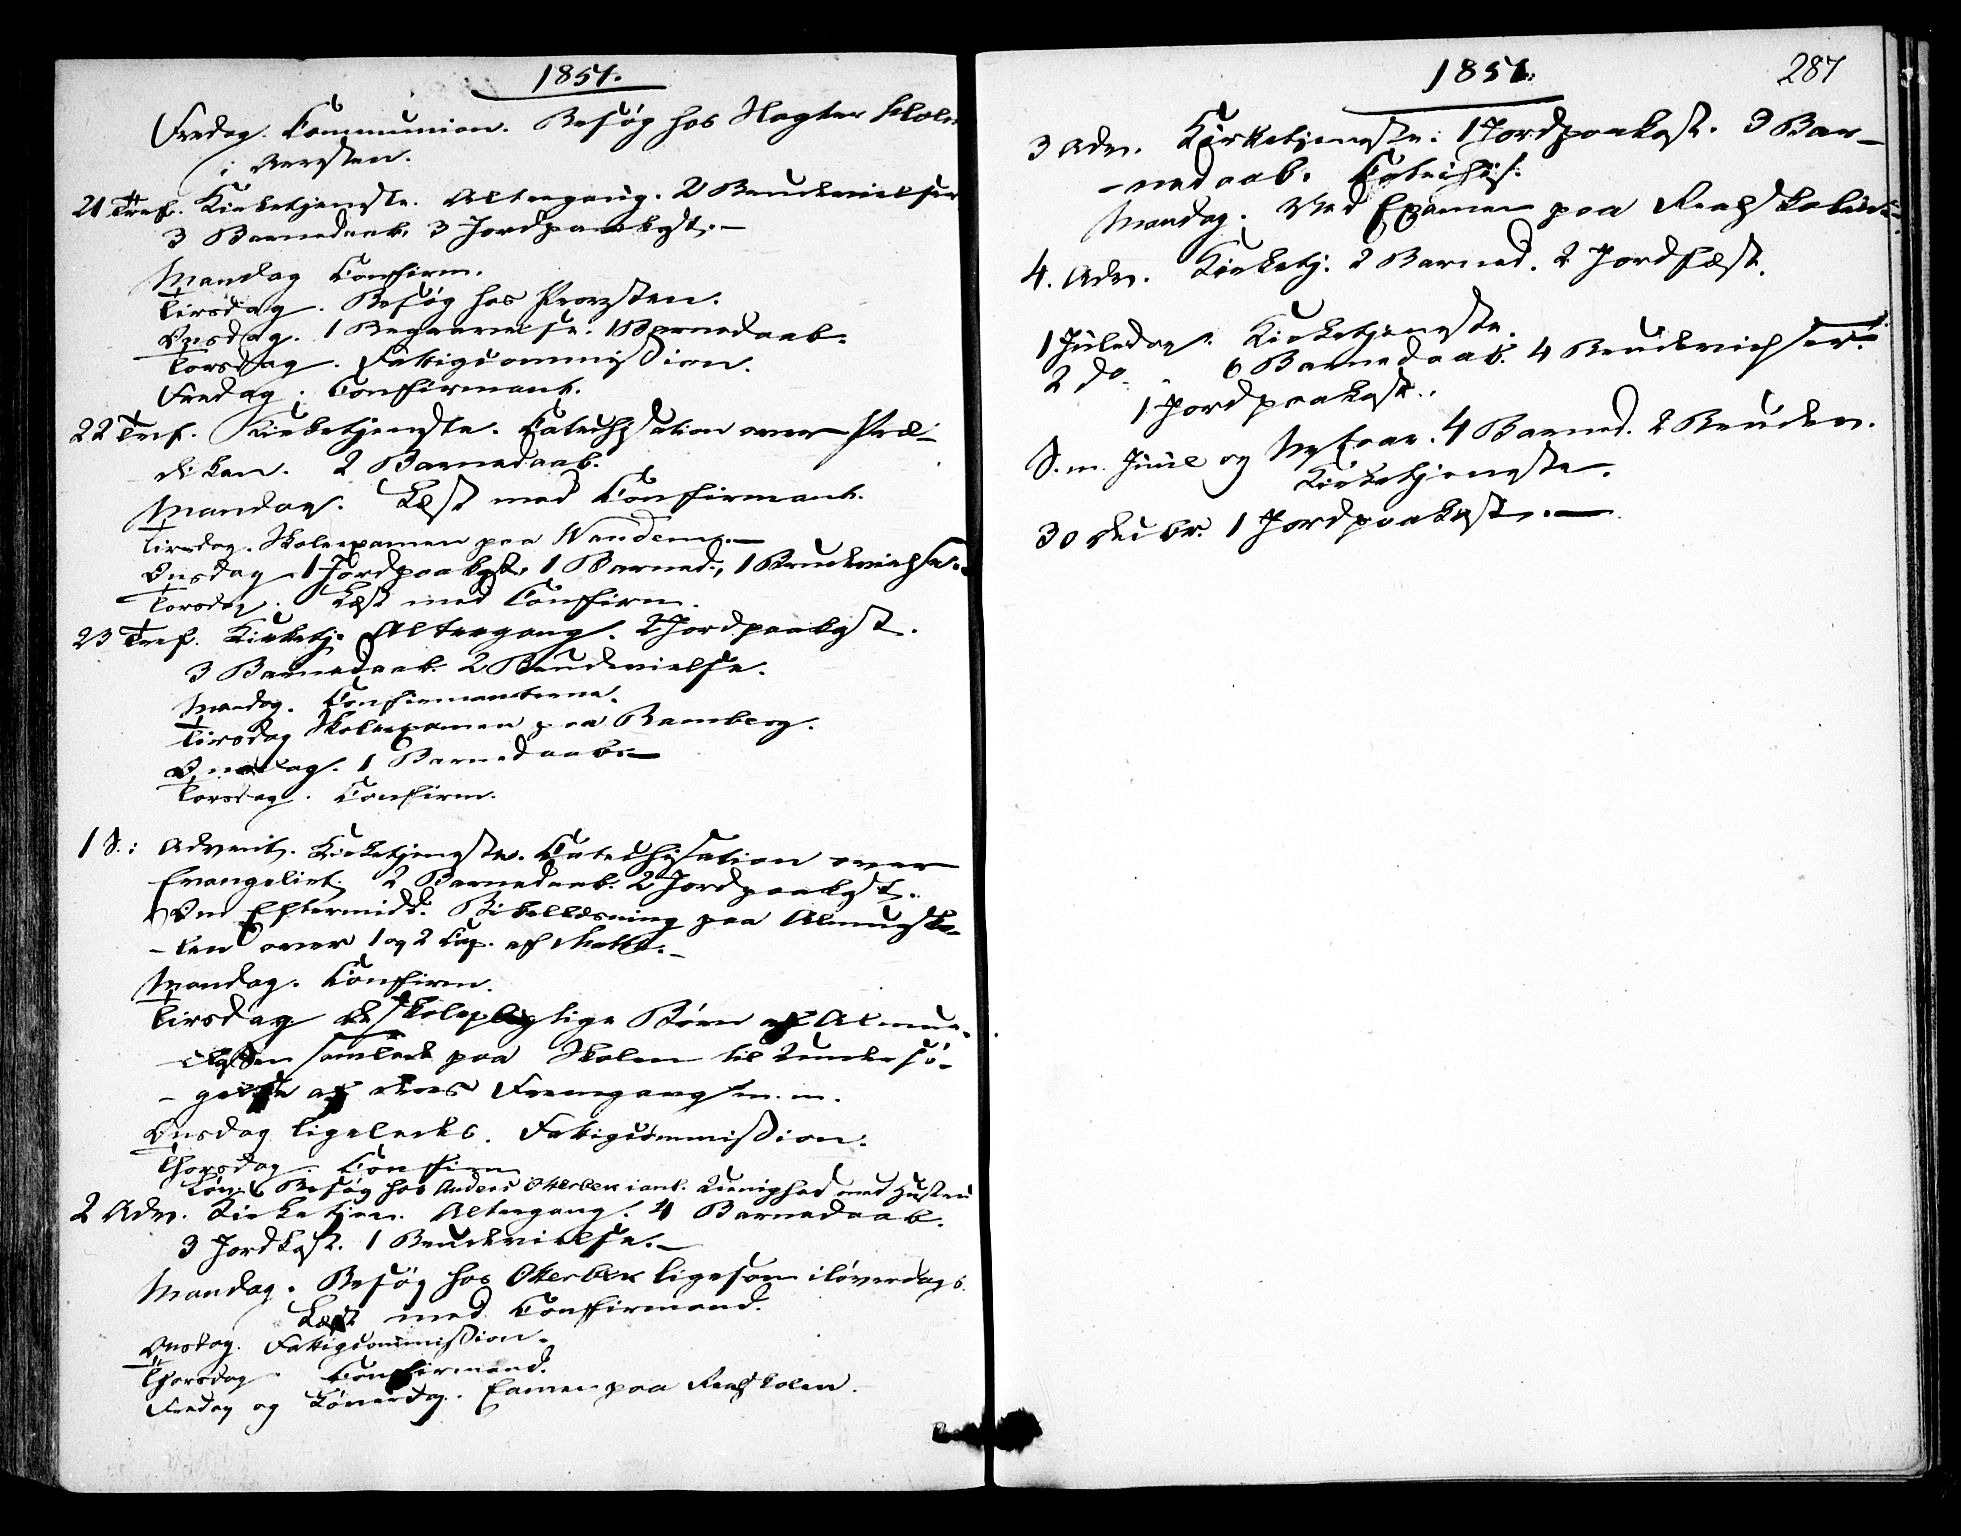 1851.
Fredag. Communion. Besøg hos Slagter Holm
i Arresten.
21 Tref. Kirketjeneste. Altergang. 2 Brudevielser
3 Barnedaab. 3 Jordpaakast.
Mandag Confirm.
Tirsdag. Besøg hos Provsten.
Onsdag. 1 Begravelse. 1 Barnedaab.
Torsdag. Fattigcommission.
Fredag. Confirmant.
22 Tref. Kirketjeneste. Catechisation over Præ-
diken. 2 Barnedaab.
Mandag. Læst med Confirmant.
Tirsdag. Skoleexamen paa
Onsdag 1 Jordpaakast, 1 Barned., 1 Brudevielse.
Torsdag. Læst med Confirm.
23 Tref. Kirketj. Altergang. 2 Jordpaakast.
3 Barnedaab. 2 Brudevielse.
Mandag. Confirmanterne.
Tirsdag Skoleexamen paa Bamberg.
Onsdag. 1 Barnedaab.
Torsdag. Confirm.
1 S.: Advent. Kirketjeneste. Catechisation over
Evangeliet. 2 Barnedaab. 2 Jordpaakast.
Om Eftermidd. Bibellæsning paa Almuesko-
len over 1 og 2 Cap. af Matth.
Mandag. Confirm.
Tirsdag de skolepligtige Børn af Almue-
samlede paa Skolen til Undersø-
-gelse af deres Fremgang m. m.
Onsdag ligeledes. Fattigcommission.
Thorsdag. Confirm
Besøg hos Anders Otterbek i anl. Uenighed med Hustru
2 Adv. Kirketjen. Altergang. 4 Barnedaab.
3 Jordkast. 1 Brudevielse.
Mandag. Besøg hos Otterbek ligesom i løverdags.
Læst med Confirmand.
Onsdag. Fattigcommission.
Thorsdag. Confirmand.
Fredag og Løverdag. Examen paa Realskolen.
1851. 287
3 Adv. Kirketjeneste. 1 Jordpaakast. 3 Bar-
-nedaab. Catechis.
Mandag. Ved Examen paa Realskolen.
4. Adv. Kirketj. 2 Barned. 2 Jordfæst.
1 Juledag. Kirketjeneste.
2 do 6 Barnedaab. 4 Brudevielser.
1 Jordpaakast.
S. m. Juul og Nytaar. 4 Barned. 2 Brudev.
Kirketjeneste.
30 Decbr. 1 Jordpaakast.